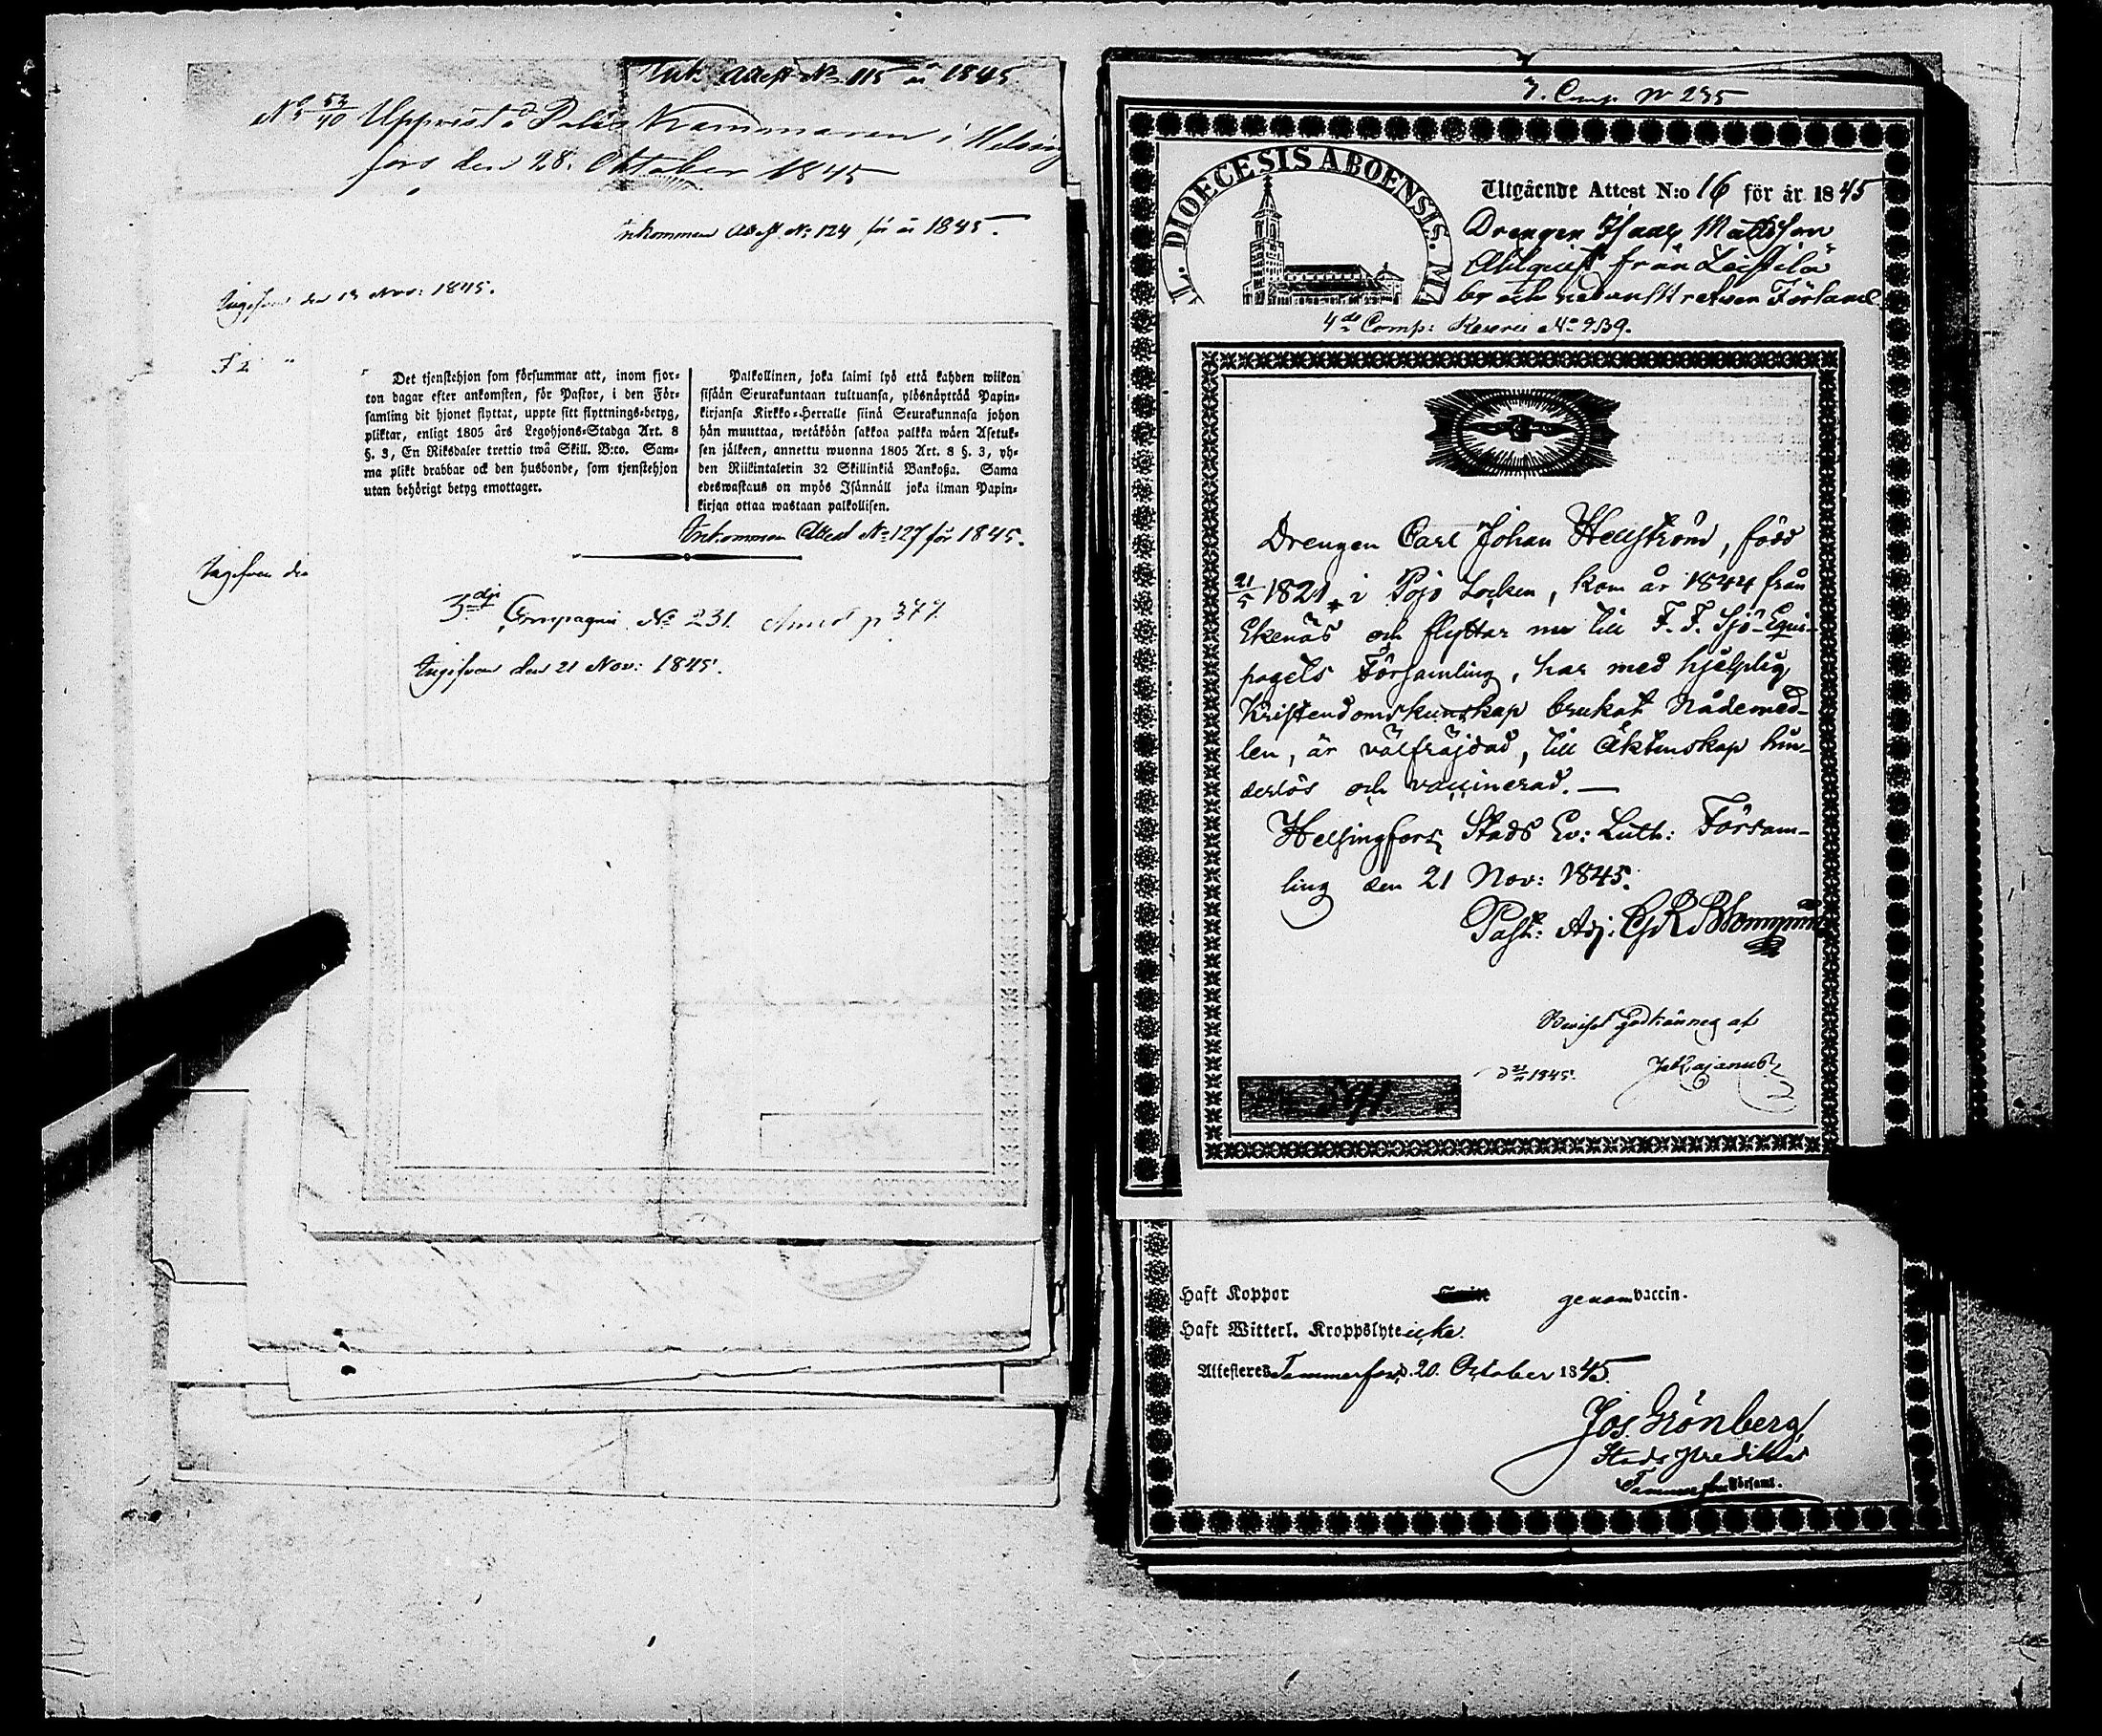 Ink. Attest No 115 år 1845
No 5 52/40 Uppvist å Polis Kammaren i Helsing
fors den 28. Oktober 1845
Inkommen Attest No 124 för år 1845.
Ingifven den 13 Nov: 1845.
Det tjenstehjon som försummar att, inom fjor-
ton dagar efter ankomsten, för Pastor, i den För-
samling dit hjonet flyttat, uppte sitt flyttnings-betyg,
pliktar, enligt 1805 års Legohjons-Stadga Art. 8
§. 3, En Riksdaler trettio twå Skill. B:co. Sam-
ma plikt drabbar ock den husbonde, som tjenstehjon
utan behörigt betyg emottager.
Palkollinen, joka laimi lyö että kahden wiikon
sisään Seurakuntaan tultuansa, ylösnäyttää Papin-
kirjansa Kirkko-Herralle siinä Seurakunnasa johon
hän muuttaa, wetäköön sakkoa palkka wäen Asetuk-
sen jälkeen, annettu wuonna 1805 Art. 8 §. 3, yh-
den Riikintalerin 32 Skillinkiä Bankoßa. Sama
edeswastaus on myös Isännäll joka ilman Papin-
kirjaa ottaa wastaan palkollisen.
Inkommen Attest No 127 för 1845.
Ingifven den
3dje Compagnie No 231.
Ingifven den 21 Nov: 1845.
7. Comp. No 235
DIOECESIS ABOENSIS.
Utgående Attest N:o 16 för år 1845
Drengen Isaac Mattsson
Ahlqvist från Leistilä
4de Comp: Reserve No 239.
Drengen Carl Johan Hellström, född
21/5 1821 i Pojo Socken, kom år 1844 från
Ekenäs och flyttar nu till F. F. Sjö-Equi-
pagets Församling, har med hjelplig
Kristendomskunskap brukat Nådemed-
len, är välfräjdad, till Äktenskap hin-
derlös och vaccinerad.
Helsingfors Stads Ev: Luth: Försam-
ling den 21 Nov: 1845.
Past: Adj:
591
Haft Koppor genom vaccin.
Haft Witterl. Kroppslyte icke.
Attesteres Tammerfors d. 20. October 1845.
Jos. Grönberg
Stads Predikant
Tammerfors Församl.